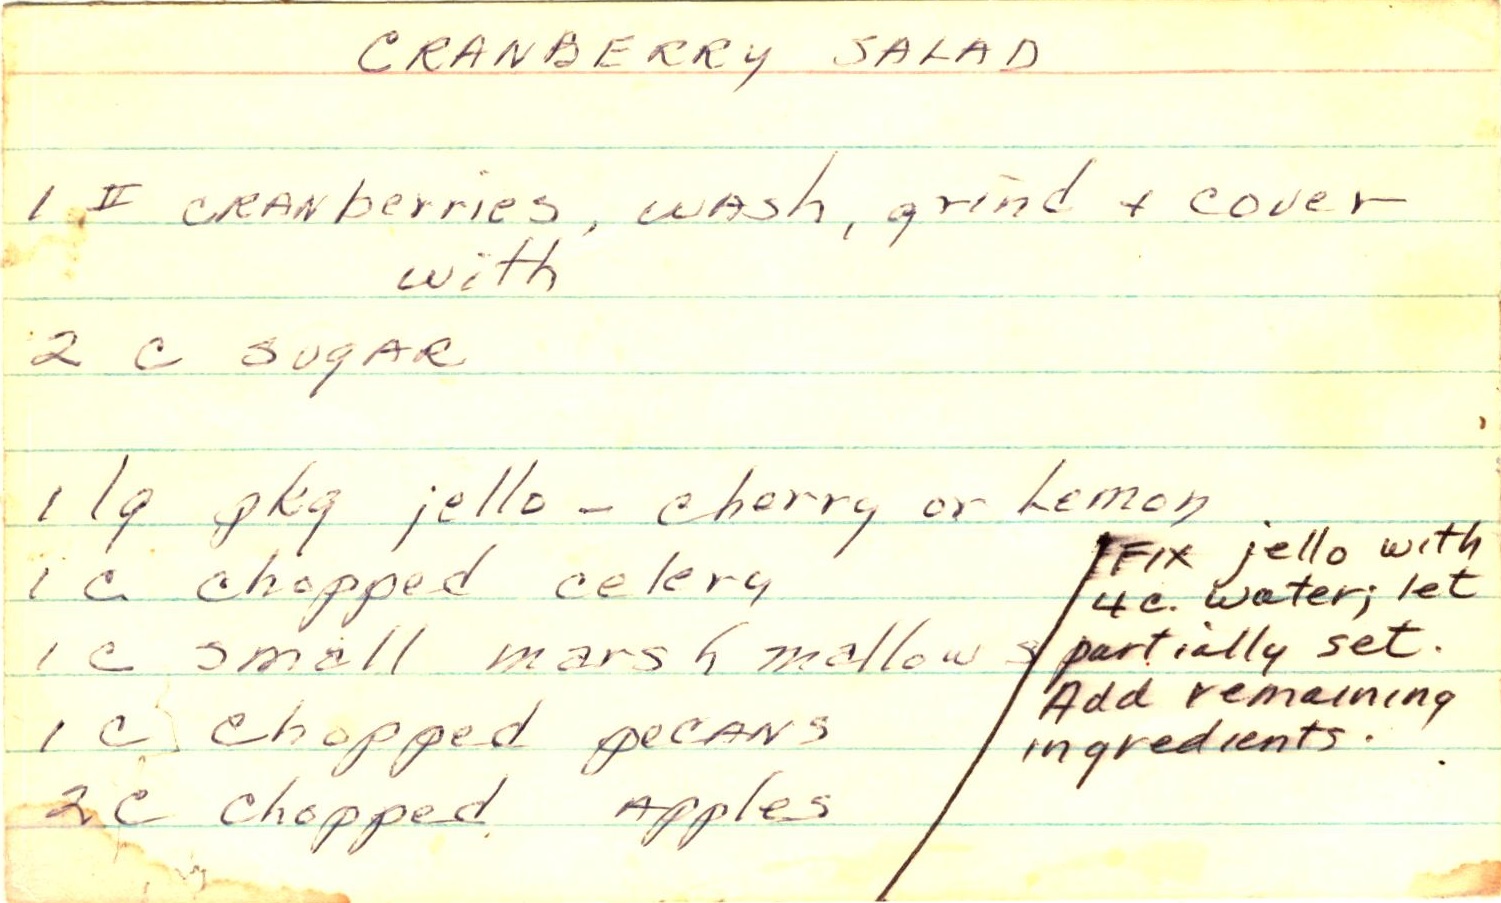 CRANBERRY SALAD
1 # CRANberries, WASh, grind + cover
with
2 C SUGAR
1 lg pkg jello - cherry or Lemon
1 C chopped celery
1 C small marshmallows
1 C chopped peCANS
2 C chopped Apples
FIX jello with
4 c. water; let
partially set.
Add remaining
ingredients.